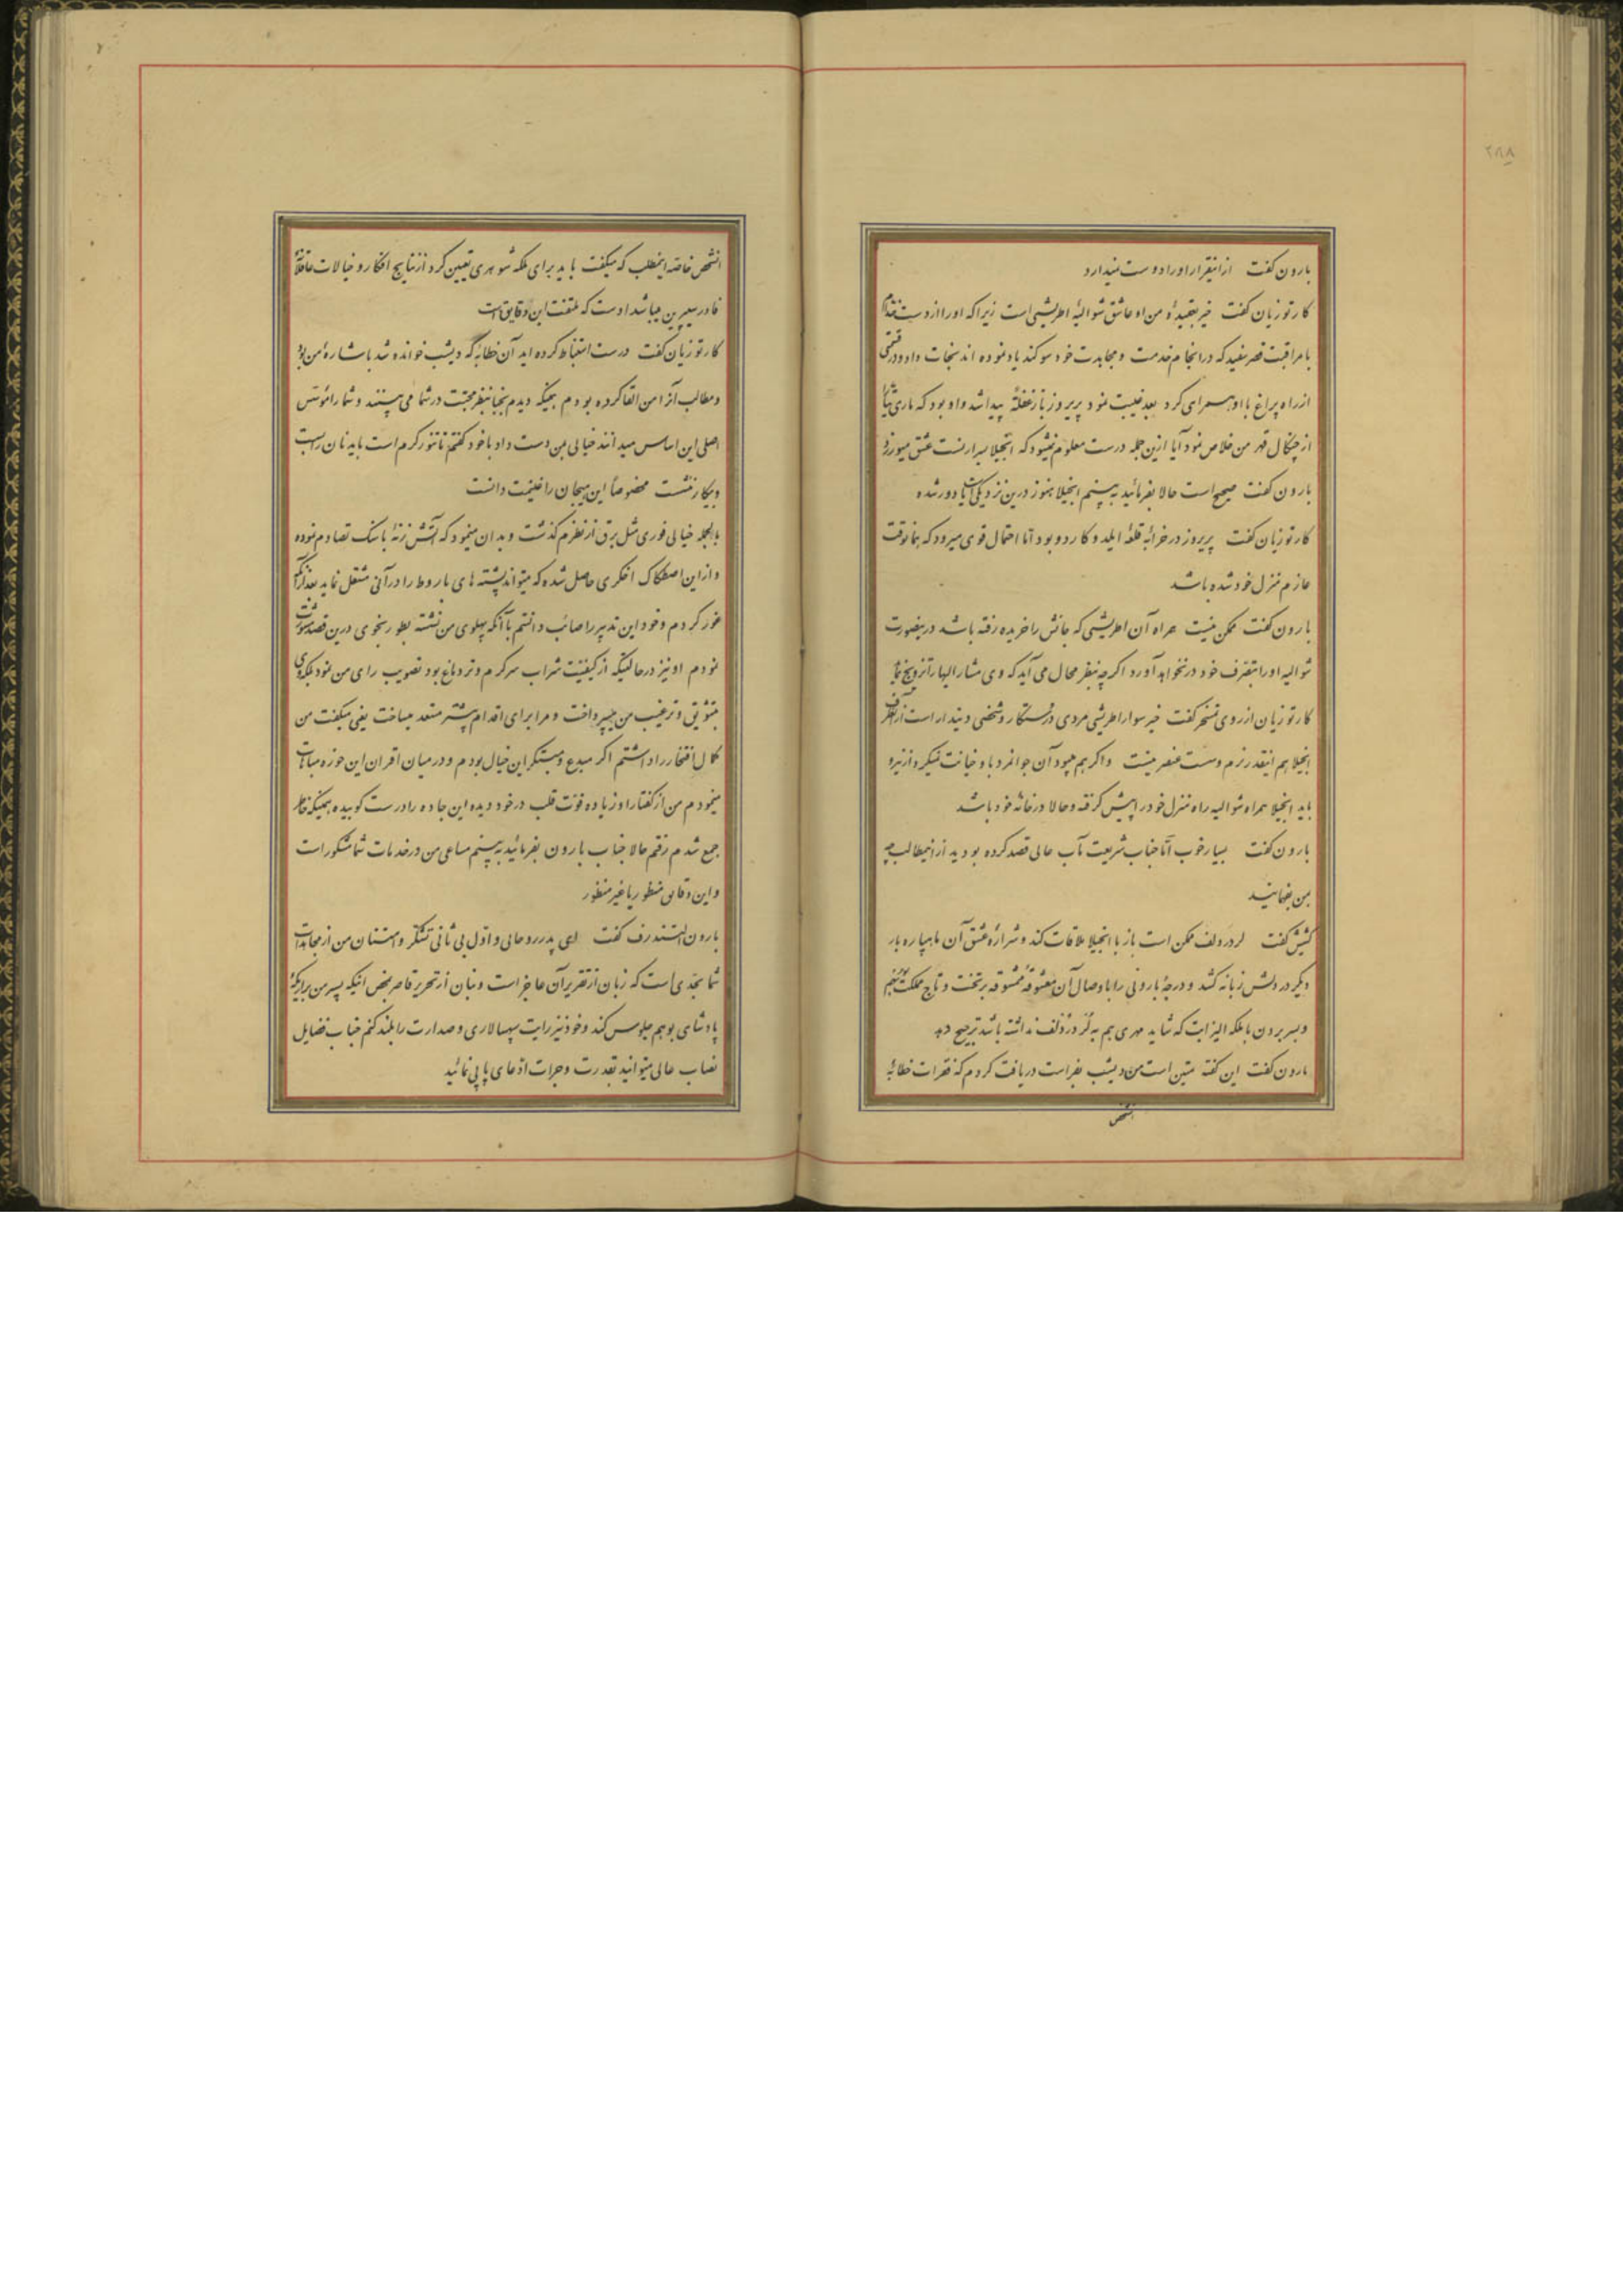 ۲۸۸
بارون گفت ازانیقرار اورا دوست نمیدارد
کارتوزیان گفت خیر بعقیدهٔ من او عاشق شوالیهٔ اطریشی است زیرا که اورا از دست خدام
با مراقبت قصر سفید که در انجام خدمت و مجاهدت خود سوکند یاد نموده اند نجات داد و در قسمتی
از راه چراغ با او همراهی کرد بعد غیبت نمود پریروز باز غفلةً پیدا شد و او بود که ماری تیانا
از چنگال قهر من خلاص نمود آیا ازین جمله درست معلوم نمیشود که انجیلا بسرارنست عشق میورزد
بارون گفت صحیح است حالا بفرمائید به بینم انجیلا هنوز درین نزدیکی است یا دور شده
کارتوزیان گفت پریروز در خرابهٔ قلعهٔ ایلدوکار دو بود اما احتمال قوی میرود که همانوقت
عازم منزل خود شده باشد
بارون گفت ممکن نیست همراه آن اطریشی که جانش را خریده رفته باشد درینصورت
شوالیه اورا بتصرف خود در نخواهد آورد اگرچه بنظر محال می آید که وی مشار الیها را تزویج نماید
کارتوزیان از روی تمسخر گفت خیر سوار اطریشی مردی درستکار و شخصی دیندار است از آنطرف
انجیلا هم انیقدر نرم و سست عنصر نیست و اگر هم میبود آن جوانمرد با و خیانت نمیکرد ازینرو
باید انجیلا همراه شوالیه راه منزل خود را پیش گرفته و حالا در خانه خود باشد
بارون گفت بسیار خوب اما جناب شریعت مآب عالی قصد کرده بودید از اینمطالب چه
بمن بفهمانید
کشیش گفت لردردلف ممکن است باز با انجیلا ملاقات کند و شرارهٔ عشق آن ماهپاره بار
دیگر در دلش زبانه کشد و درجهٔ بارونی را با وصال آن معشوقهٔ ممشوقه بر تخت و تاج مملکت بوهم
و بسر بردن با ملکه الیزابت که شاید مهری هم به لردردلف نداشته باشد ترجیح دهد
بارون گفت این گفته متین است من دیشب بفراست دریافت کردم که فقرات خطابهٔ
شخص
انشخص خاصه اینمطلب که میگفت باید برای ملکه شوهری تعیین کرد از نتایج افکار و خیالات عاقلانهٔ
فادر سیپرین میباشد اوست که ملتفت این دقایق است
کارتوزیان گفت درست استنباط کرده اید آن خطابه که دیشب خوانده شد باشاره من بود
و مطالب آنرا من القا کرده بودم همینکه دیدم نجبا بنظر محبت در شما می بینند و شما را مؤسس
اصلی این اساس میدانند خیالی بمن دست داد با خود گفتم تا تنور گرم است باید نان را بست
و بیکار ننشست مخصوصاً این هیجان را غنیمت دانست
بالجمله خیالی فوری مثل برق از نظرم گذشت و بدان مینمود که آتش زنهٔ با سنگ تصادم نموده
و از این اصطکاک اخگری حاصل شده که میتواند پشته های باروط را در آنی مشتعل نماید بعد از آنکه
غور کردم و خود این تدبیر را صائب دانستم با آنکه پهلوی من نشسته بطور نجوی درین قصد مشورت
نمودم او نیز در حالتیکه از کیفیت شراب سرگرم و تر دماغ بود تصویب رای من نمود بلکه وی
بتشویق و ترغیب من میپرداخت و مرا برای اقدام بیشتر مستعد میساخت یعنی میگفت من
کمال افتخار را داشتم اگر مبدع و مبتکر این خیال بودم و در میان اقران این حوزه مباهات
مینمودم من از گفتار او زیاده قوت قلب در خود دیده این جاده را درست کوبیده همینکه خاطر
جمع شدم رفتم حالا جناب بارون بفرمائید به بینم مساعی من در خدمات شما مشکور است
و این دقائق منظور یا غیر منظور
بارون التسندرف گفت ای پدر روحانی و اول بی ثانی تشکر و امتنان من از مجاهدات
شما بحدی است که زبان از تقریر آن عاجز است و بنان از تحریر قاصر بمحض اینکه پسر من بر اریکهٔ
پادشاهی بوهم جلوس کند و خود نیز رایت سپهسالاری و صدارت را بلند کنم جناب فضایل
نصاب عالی میتوانید بقدرت و جرات ادعای پاپی نمائید